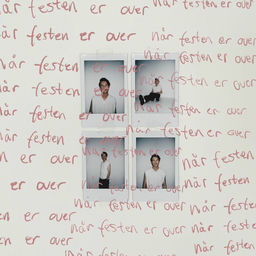 når festen er over
når festen er over
når festen er over
når festen er over
når festen er over
når festen er over
når festen
når festen er over
når festen
når festen er over
når festen er
når festen er over
n er over
når festen
er over
når festen
når festen er over når festen
n er over
når festen er over når festen
en er over
når festen
når festen er over